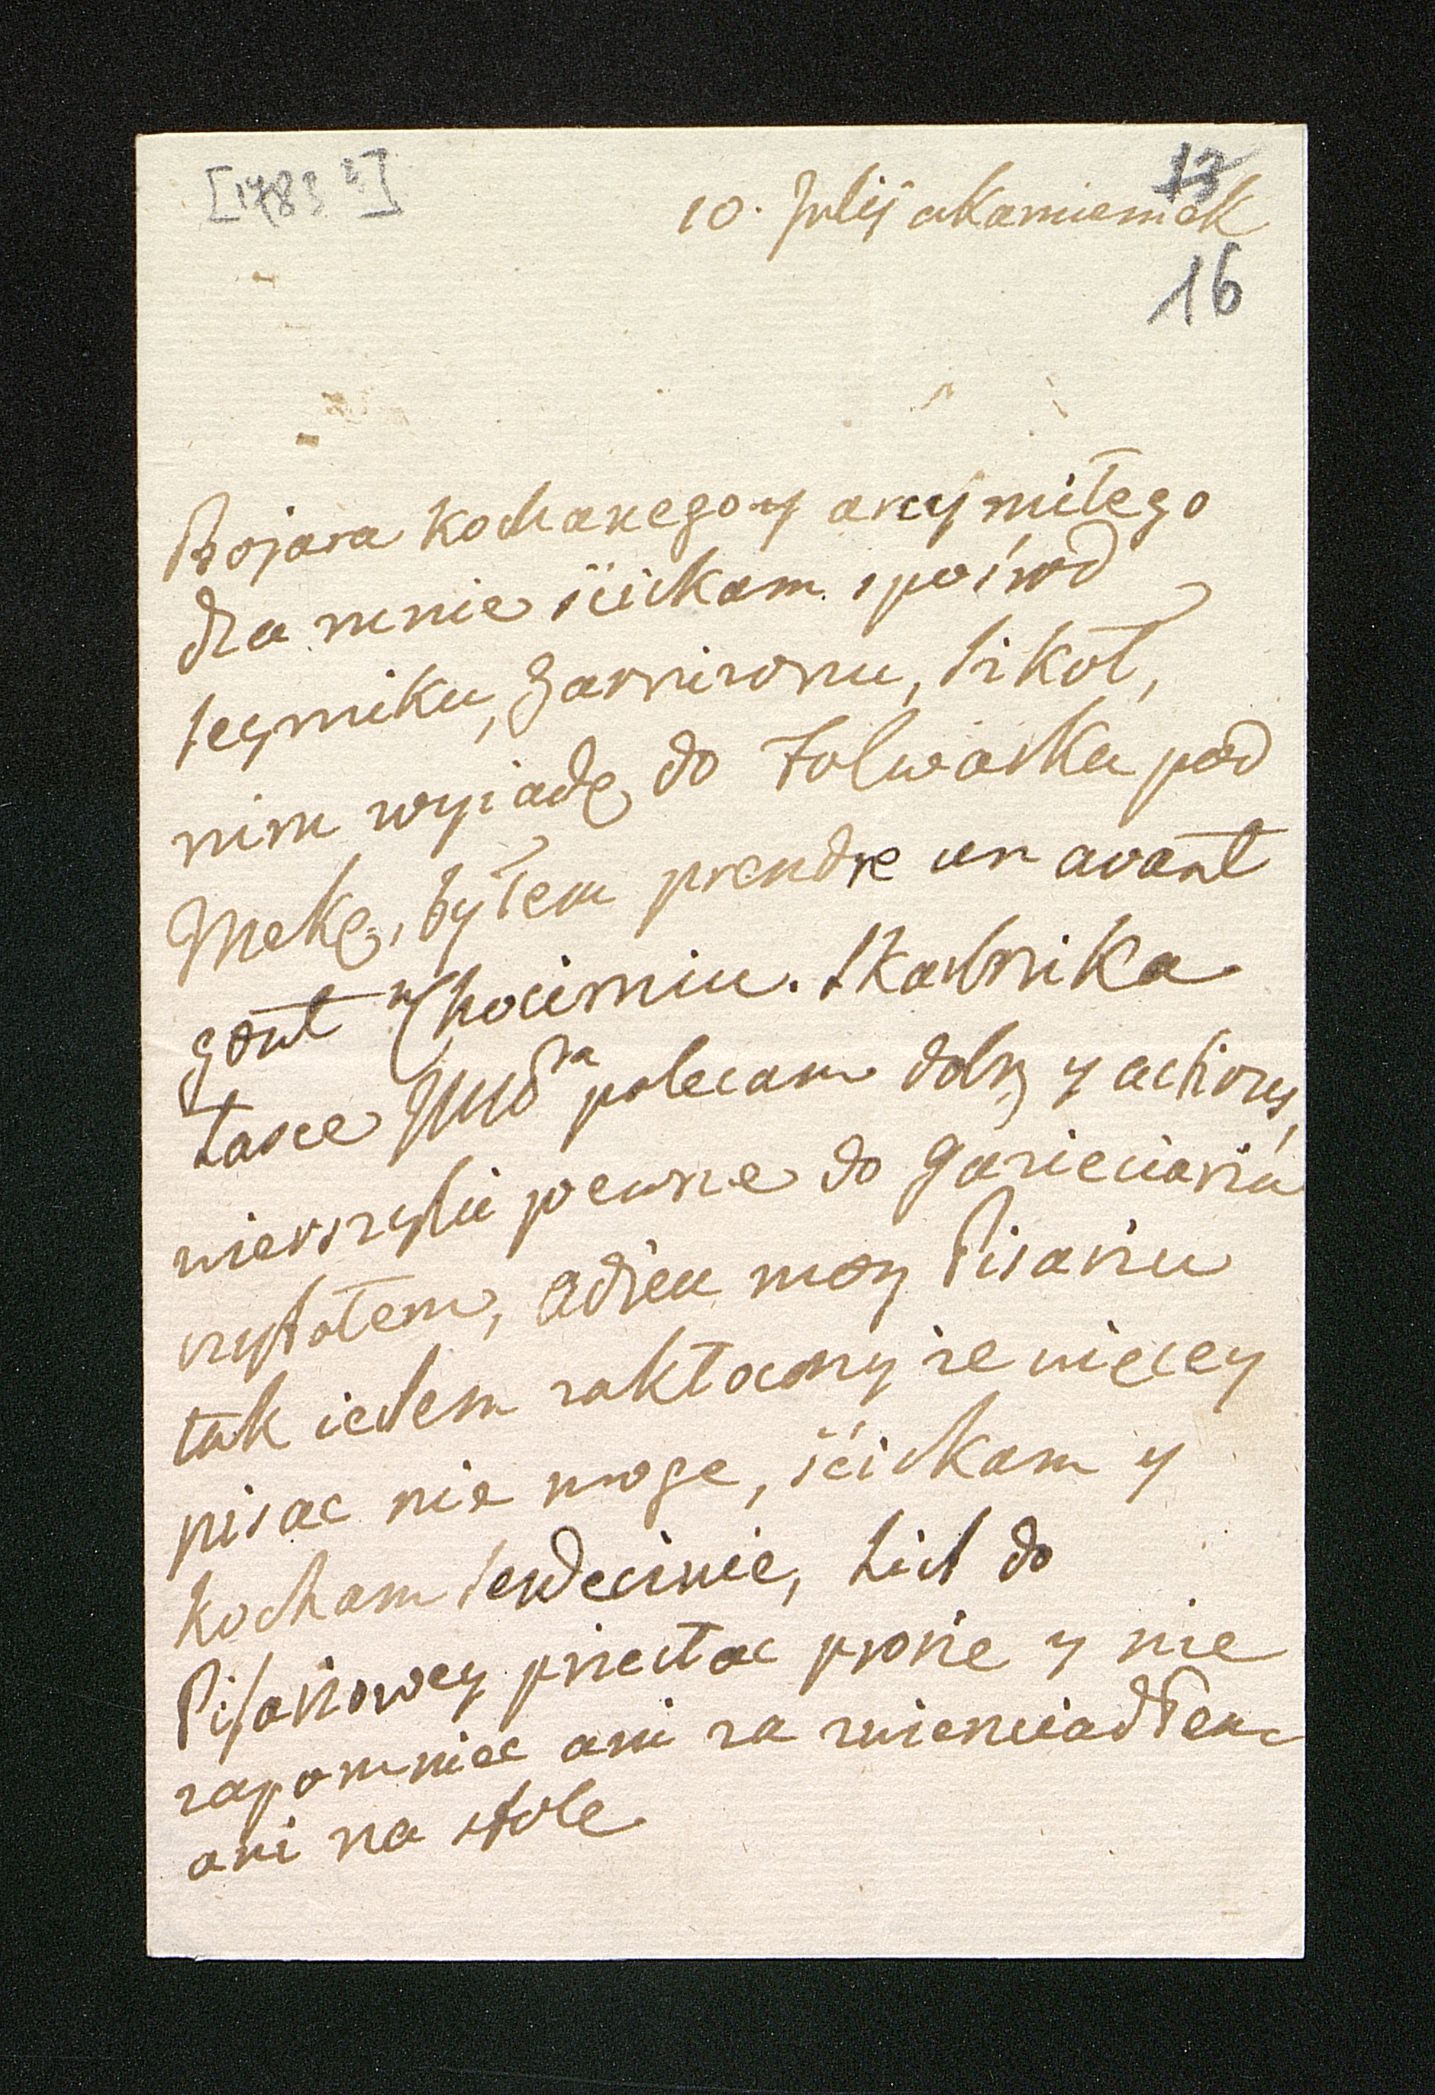 [1783 ?]
13
10. Julij a Kamieniek
16
Bojara Kochanego y arcymiłego
dla mnie scickam spośrod
seymiku, Garnizonu, szkoł,
nim wyiadę do Folwarku pod
Mekę, byłem prendre un avant
gout w Chocimiu. Skarbnika
Łasce WMD polecam dobry y
wierszyki pewne do Gazeciarza
czytałem, adieu moy Pisarzu
tak iestem zakłocony ze więcey
pisac nie moge, scickam y
Kocham serdecznie, List do
Pisarzowey przesłac prosze y nie
zapomniec ani za zwierciadłem
ani na stole